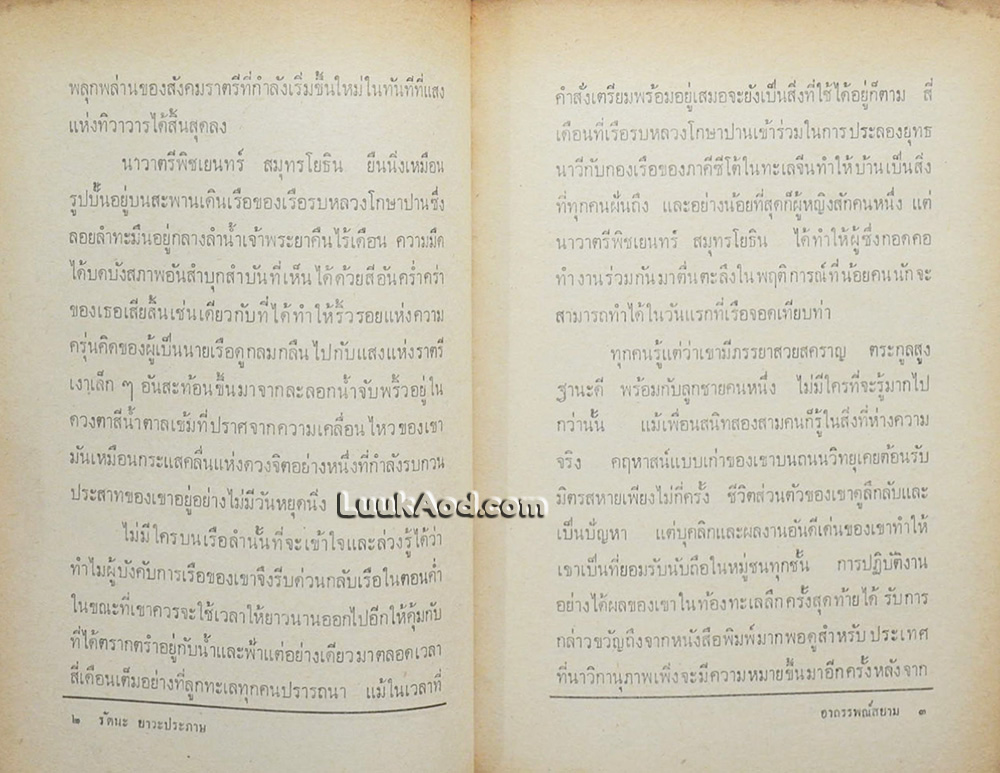 พลุกพล่านของสังคมราตรีที่กำลังเริ่มขึ้นใหม่ในทันทีที่แสง
แห่งทิวาวารได้สิ้นสุดลง
นาวาตรีพิชเยนทร์ สมุทรโยธิน ยืนนิ่งเหมือน
รูปปั้นอยู่บนสะพานเดินเรือของเรือรบหลวงโกษาปานซึ่ง
ลอยลำทะมึนอยู่กลางลำน้ำเจ้าพระยาคืนไร้เดือน ความมืด
ได้บดบังสภาพอันสำบุกสำบันที่เห็นได้ด้วยสีอันคร่ำคร่า
ของเธอเสียสิ้นเช่นเดียวกับที่ได้ทำให้ริ้วรอยแห่งความ
ครุ่นคิดของผู้เป็นนายเรือดูกลมกลืนไปกับแสงแห่งราตรี
เงาเล็ก ๆ อันสะท้อนขึ้นมาจากละลอกน้ำจับพริ้วอยู่ใน
ดวงตาสีน้ำตาลเข้มที่ปราศจากความเคลื่อนไหวของเขา
มันเหมือนกระแสคลื่นแห่งดวงจิตอย่างหนึ่งที่กำลังรบกวน
ประสาทของเขาอยู่อย่างไม่มีวันหยุดนิ่ง
ไม่มีใครบนเรือลำนั้นที่จะเข้าใจและล่วงรู้ได้ว่า
ทำไมผู้บังคับการเรือของเขาจึงรีบด่วนกลับเรือในตอนค่ำ
ในขณะที่เขาควรจะใช้เวลาให้ยาวนานออกไปอีกให้คุ้มกับ
ที่ได้ตรากตรำอยู่กับน้ำและฟ้าแต่อย่างเดียวมาตลอดเวลา
สี่เดือนเต็มอย่างที่ลูกทะเลทุกคนปรารถนา แม้ในเวลาที่
๒ รัตนะ ยาวะประภาษ
คำสั่งเตรียมพร้อมอยู่เสมอจะยังเป็นสิ่งที่ใช้ได้อยู่ก็ตาม สี่
เดือนที่เรือรบหลวงโกษาปานเข้าร่วมในการประลองยุทธ
นาวีกับกองเรือของภาคีซีโต้ในทะเลจีนทำให้บ้านเป็นสิ่ง
ที่ทุกคนฝันถึง และอย่างน้อยที่สุดก็ผู้หญิงสักคนหนึ่ง แต่
นาวาตรีพิชเยนทร์ สมุทรโยธิน ได้ทำให้ผู้ซึ่งกอดคอ
ทำงานร่วมกันมาตื่นตะลึงในพฤติการณ์ที่น้อยคนนักจะ
สามารถทำได้ในวันแรกที่เรือจอดเทียบท่า
ทุกคนรู้แต่ว่าเขามีภรรยาสวยสคราญ ตระกูลสูง
ฐานะดี พร้อมกับลูกชายคนหนึ่ง ไม่มีใครที่จะรู้มากไป
กว่านั้น แม้เพื่อนสนิทสองสามคนก็รู้ในสิ่งที่ห่างความ
จริง คฤหาสน์แบบเก่าของเขาบนถนนวิทยุเคยต้อนรับ
มิตรสหายเพียงไม่กี่ครั้ง ชีวิตส่วนตัวของเขาดูลึกลับและ
เป็นปัญหา แต่บุคลิกและผลงานอันดีเด่นของเขาทำให้
เขาเป็นที่ยอมรับนับถือในหมู่ชนทุกชั้น การปฏิบัติงาน
อย่างได้ผลของเขาในท้องทะเลลึกครั้งสุดท้ายได้ รับการ
กล่าวขวัญถึงจากหนังสือพิมพ์มากพอดูสำหรับ ประเทศ
ที่นาวิกานุภาพเพิ่งจะมีความหมายขึ้นมาอีกครั้งหลังจาก
อาถรรพณ์สยาม ๓
LuukAod.com